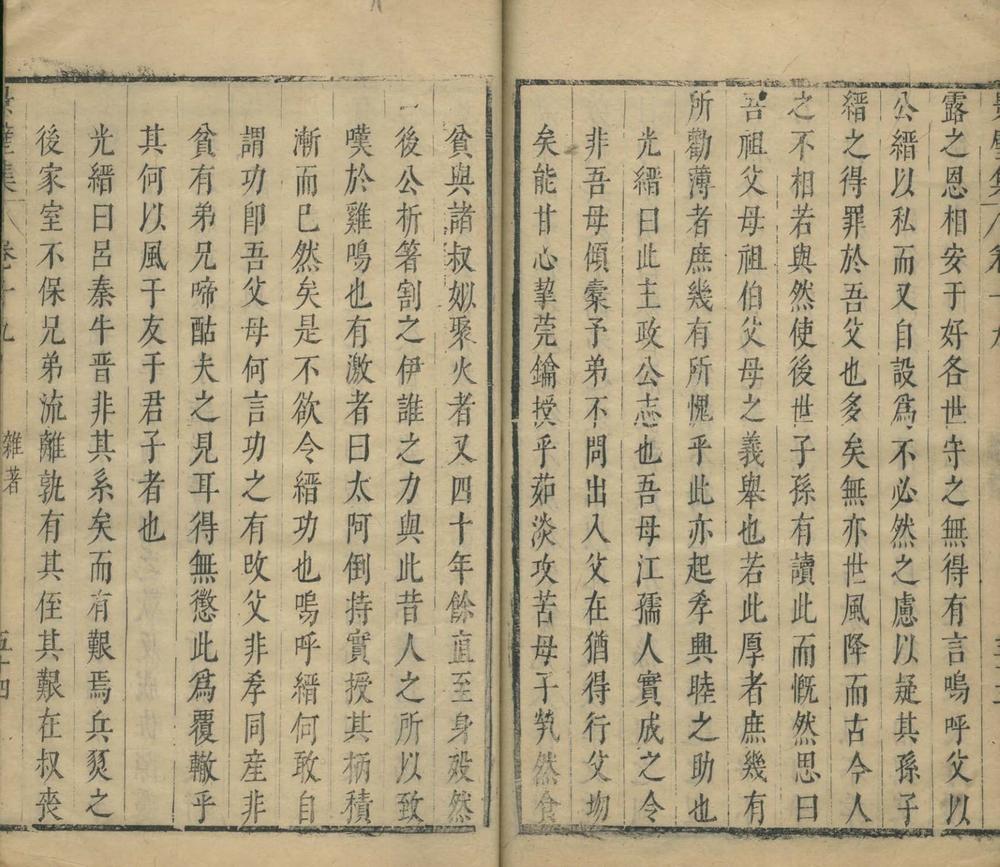 露之恩相安于好各世守之無得有言嗚呼父以
公縉以私而又自設為不必然之慮以疑其孫子
縉之得罪於吾父也多矣無亦世風降而古今人
之不相若與然使後世子孫有讀此而慨然思曰
吾祖父母祖伯父母之義舉也若此厚者庶幾有
所勸薄者庶幾有所愧乎此亦起孝興睦之助也
光縉曰此主政公志也吾母江孺人實成之令
非吾母傾橐予弟不問出入父在猶得行父歿
矣能甘心挈莞鑰授乎茹淡攻苦母子煢然食
貧與諸叔姒聚火者又四十年餘直至身歿然
後公析箸割之伊誰之力與此昔人之所以致
嘆於雞鳴也有激者曰太阿倒持實授其柄積
漸而已然矣是不欲令縉功也嗚呼縉何敢自
謂功卽吾父母何言功之有改父非孝同産非
貧有弟兄啼酤夫之見耳得無懲此爲覆轍乎
其何以風于友于君子者也
光縉曰呂秦牛晋非其系矣而有艱焉兵燹之
後家室不保兄弟流離孰有其侄其艱在叔喪
卷十九
雜著
五十四